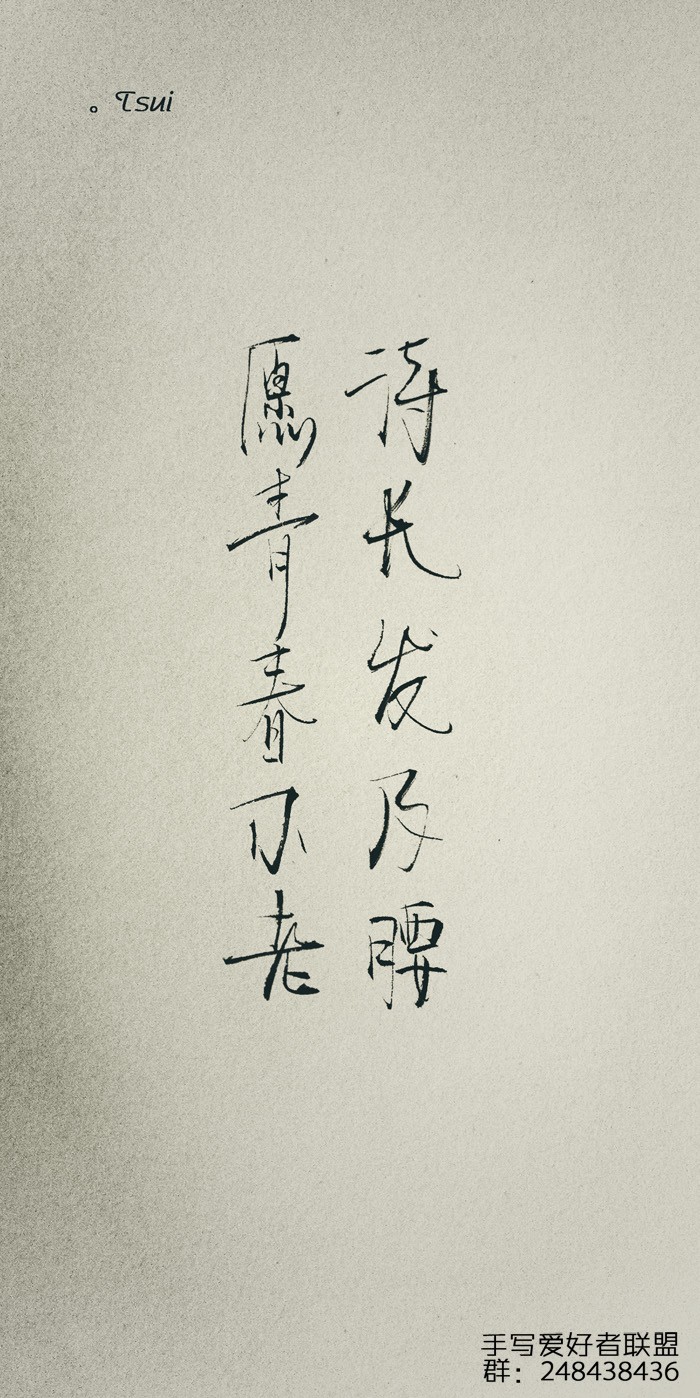 。Tsui
待长发及腰
愿青春不老
手写爱好者联盟
群：248438436